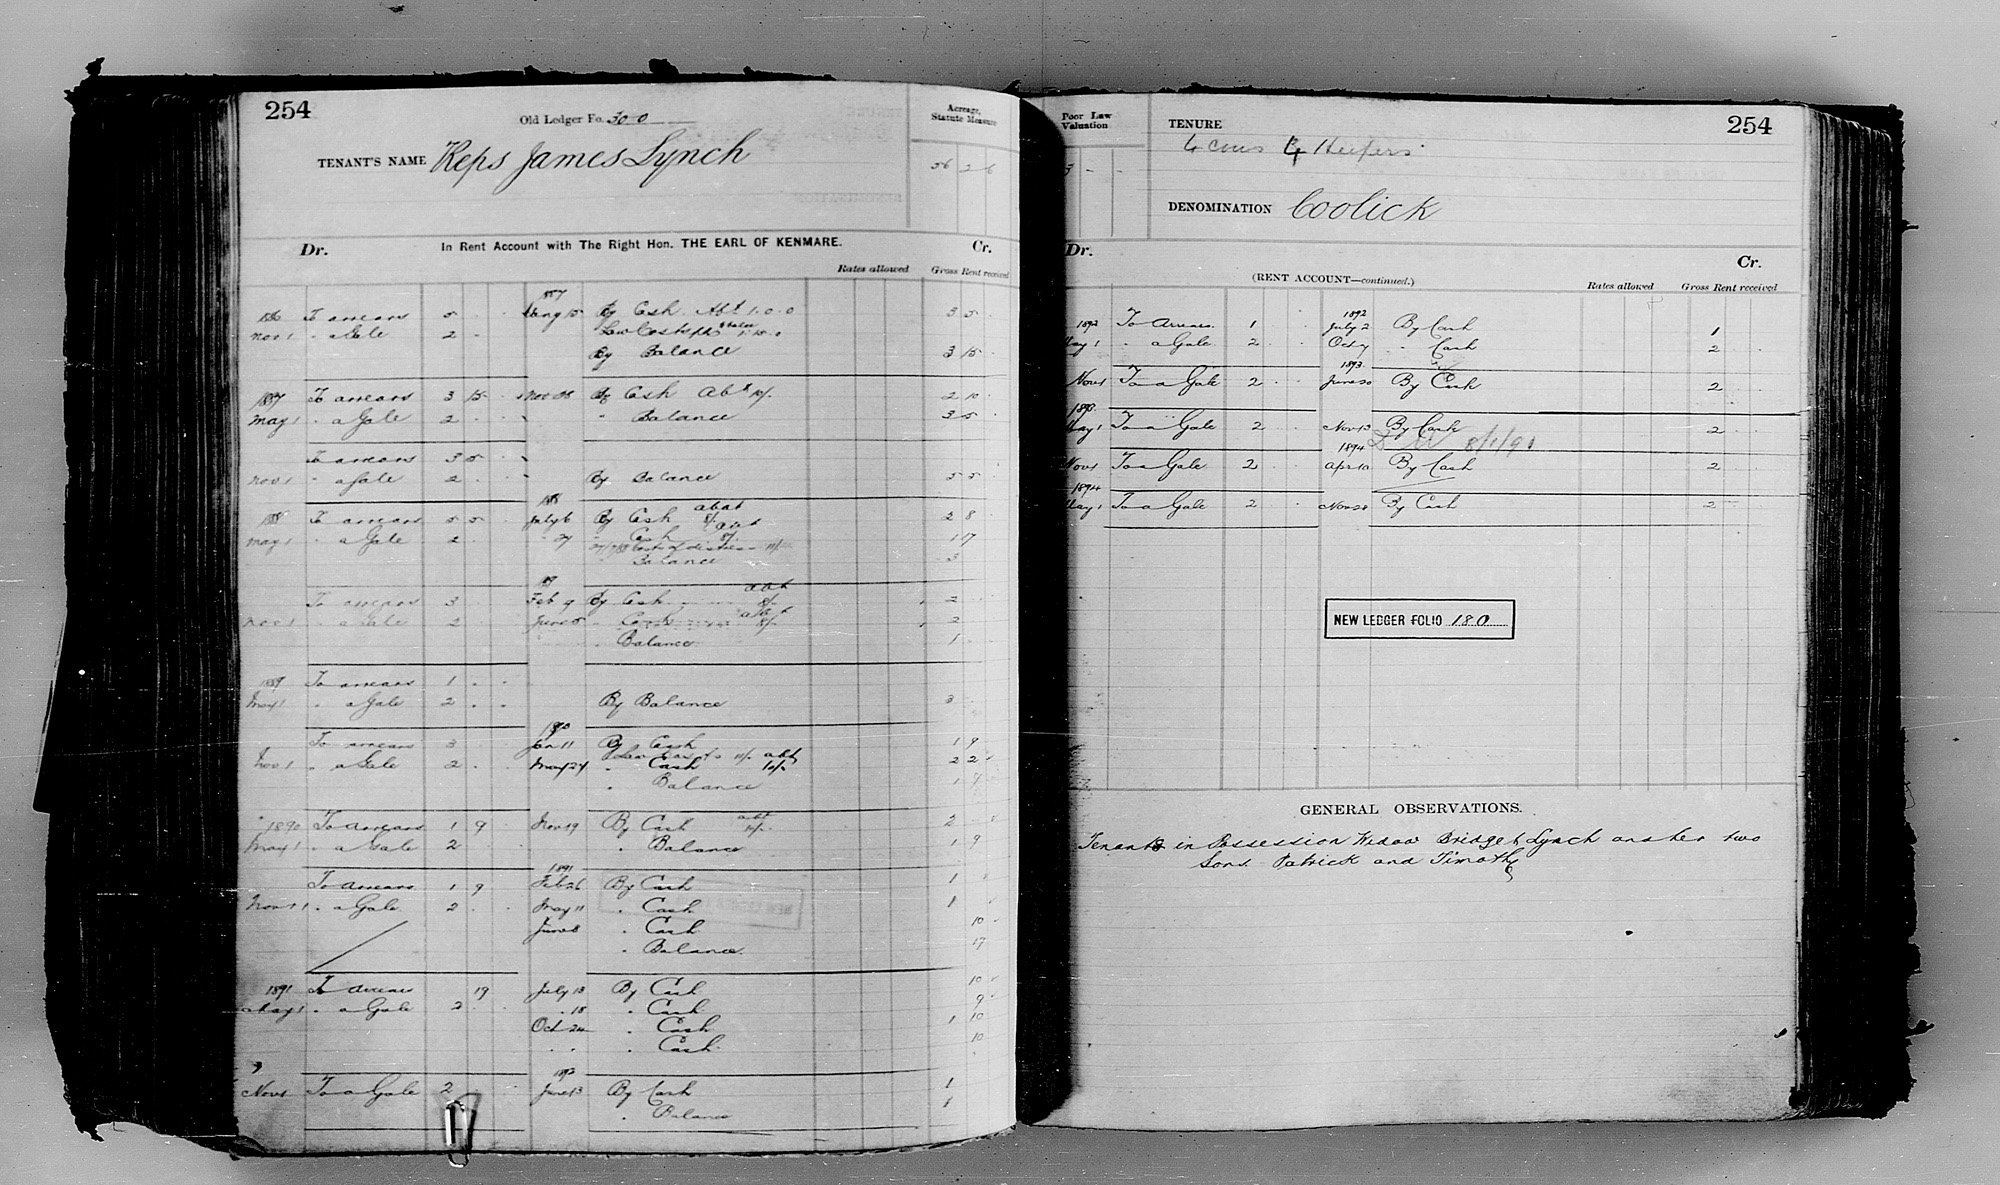 254
Old Ledger Fo. 300
Acreage, Statute Measure
TENANT'S NAME Reps James Lynch
56 2 6
Dr. In Rent Account with The Right Hon. THE EARL OF KENMARE. Cr.
Rates allowed Gross Rent received
1887
1886 To arrears 5 . . Aug 15 By Cash Abt 1.0.0 3 5 .
Nov 1 " a Gale 2 - Law Costs 1.15.0
By Balance 3 15 .
1887 To arrears 3 15 . Nov By Cash Abt 10/- 2 10 .
May 1 " a Gale 2 . " Balance 3 5 .
To arrears 3 5 .
Nov 1 " a Gale 2 . By Balance 5 5 .
188
188 To arrears 5 5 . July 6 By Cash abat 8/- 2 8 .
May 1 " a Gale 2 . " 27 " Cash abt 8/- 1 17
27/7/88 Cost of distress 11/-
Balance 3
89
To arrears 3 . Feb 9 By Cash abt 8/- 2
Nov 1 " a Gale 2 . June 5 " Cash abt 8/- 2
" Balance 1
1889 To arrears 1 . .
May 1 " a Gale 2 . . By Balance 3
1890
To arrears 3 . Jan 11 By Cash 1 9
Law Costs 11/- abt
Nov 1 " a Gale 2 . May 24 " Cash 10/- 2 2
" Balance 1 9
1890 To arrears 1 9 Nov 19 By Cash abt 10/- 2
May 1 " a Gale 2 " Balance 1 9
1891
To arrears 1 9 Feb 26 By Cash 1
Nov 1 " a Gale 2 . . May 11 " Cash 1
June 8 " Cash 10
" Balance 17
1891 To arrears 19 July 13 By Cash 10
May 1 " a Gale 2 . . " 18 " Cash 9
Oct 24 " Cash 1 10
" " " Cash 10
1892
Nov 1 To a Gale 2 June 13 By Cash 1
" Balance 1
Poor Law Valuation
TENURE
254
4 cows 4 Heifers
3 - -
DENOMINATION Coolick
Dr. Cr.
(RENT ACCOUNT—continued.)
Rates allowed Gross Rent received
1892
1892 To Arrears 1 . . July 2 By Cash 1
May 1 " a Gale 2 . . Oct 7 " Cash 2
1893
Nov 1 To a Gale 2 . . June 20 By Cash 2
1893
May 1 To a Gale 2 . . Nov 13 By Cash 2
1894
Nov 1 To a Gale 2 . . Apr 10 By Cash 2
1894
May 1 To a Gale 2 . . Nov 28 By Cash 2
NEW LEDGER FOLIO 180
GENERAL OBSERVATIONS.
Tenants in Possession Widow Bridget Lynch and her two
Sons Patrick and Timothy